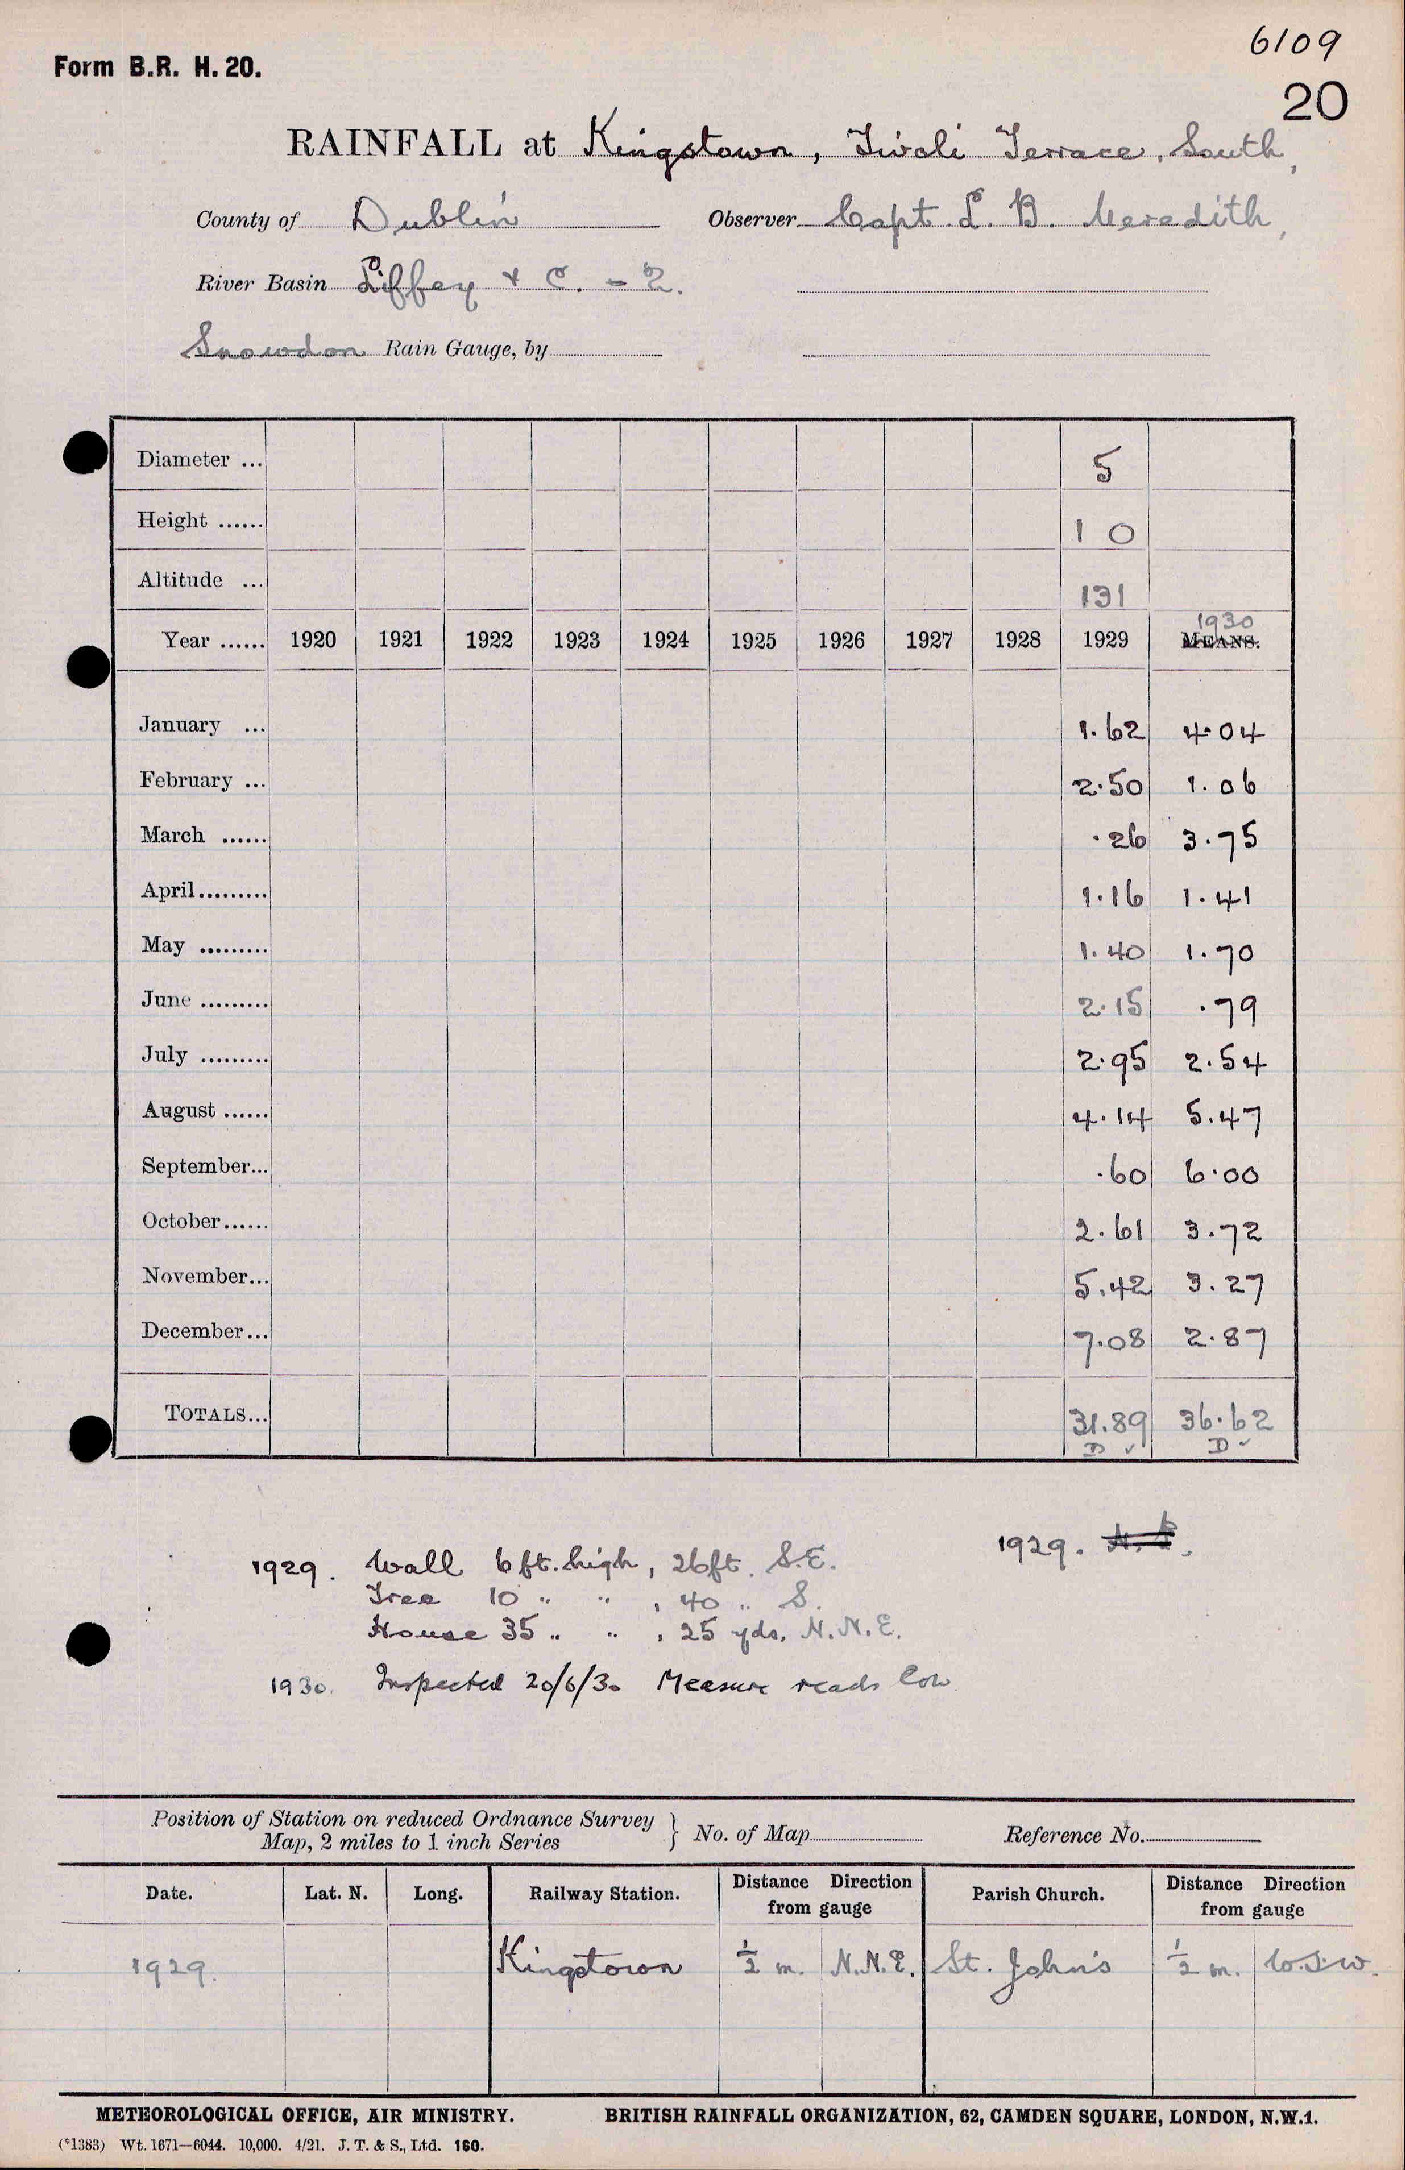 6109
Form B.R. H. 20.
20
RAINFALL at Kingstown, Tivoli Terrace, South,
County of Dublin Observer Capt. L. B. Meredith,
River Basin Liffey & C. - 2.
Snowdon Rain Gauge, by
Diameter ... 5
Height ...... 1 0
Altitude ... 131
Year ...... 1920 1921 1922 1923 1924 1925 1926 1927 1928 1929 1930 MEANS.
January ... 1.62 4.04
February ... 2.50 1.06
March ...... .26 3.75
April ......... 1.16 1.41
May ......... 1.40 1.70
June ......... 2.15 .79
July ......... 2.95 2.54
August ...... 4.14 5.47
September... .60 6.00
October...... 2.61 3.72
November... 5.42 3.27
December... 7.08 2.87
TOTALS... 31.89 36.62
D ✓ D ✓
1929. Wall 6 ft. high, 26 ft. S.E. 1929.
Tree 10 " " , 40 " S.
House 35 " " , 25 yds. N.N.E.
1930. Inspected 20/6/30 Measure reads low
Position of Station on reduced Ordnance Survey
Map, 2 miles to 1 inch Series } No. of Map Reference No.
Date. Lat. N. Long. Railway Station. Distance Direction from gauge Parish Church. Distance Direction from gauge
1929. Kingstown ½ m. N.N.E. St. John's ½ m. W.S.W.
METEOROLOGICAL OFFICE, AIR MINISTRY. BRITISH RAINFALL ORGANIZATION, 62, CAMDEN SQUARE, LONDON, N.W.1.
(*1383) Wt. 1671—6044. 10,000. 4/21. J. T. & S., Ltd. 160.